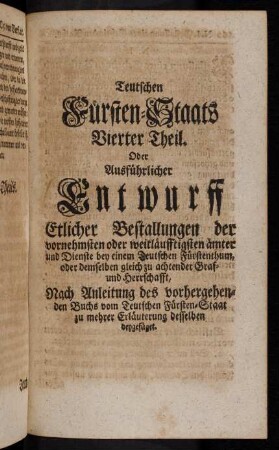 Teutschen
Fürsten-Staats
Vierter Theil.
Oder
Ausführlicher
Entwurff
Etlicher Bestallungen der
vornehmsten oder weitläufftigsten ämter
und Dienste bey einem Teutschen Fürstenthum,
oder demselben gleich zu achtender Graf-
und Herrschafft,
Nach Anleitung des vorhergehen-
den Buchs vom Teutschen Fürsten-Staat
zu mehrer Erläuterung desselben
beygefüget.